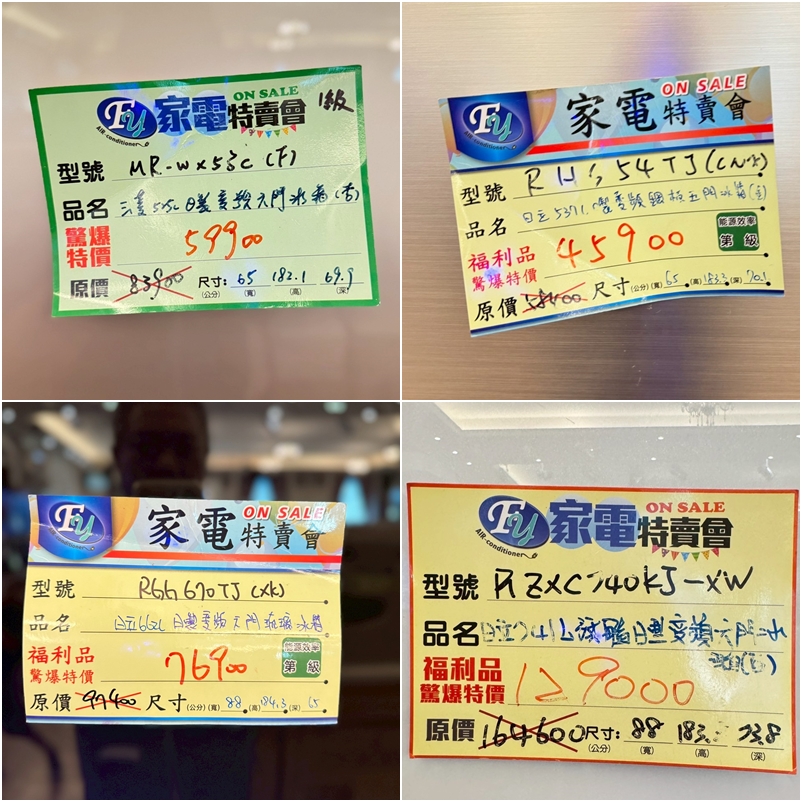 FY
AIR-conditioner
ON SALE
家電特賣會
1級
型號 MR-WX53C(F)
品名 三菱525L日製變頻六門冰箱(杏)
驚爆特價 59900
原價 83900 尺寸: 65 182.1 69.9
(公分) (寬) (高) (深)
FY
AIR-conditioner
ON SALE
家電特賣會
型號 54TJ
品名 日立537L 變頻鋼板五門冰箱
能源效率
第 級
福利品
驚爆特價 45900
原價 58400 尺寸(公分)(寬)65(高)183.3(深)70.1
FY
AIR-conditioner
ON SALE
家電特賣會
型號 RGG670TJ(XK)
品名 日立662L日製變頻六門琉璃冰箱
能源效率
第 級
福利品
驚爆特價 76900
原價 97400 尺寸(公分)(寬)88(高)184.3(深)65
FY
AIR-conditioner
ON SALE
家電特賣會
型號 RZXC740KJ-XW
品名 日立741L琉璃日製變頻六門冰
箱
福利品
驚爆特價 129000
原價 164600 尺寸: 88 183. 73.8
(公分) (寬) (高) (深)